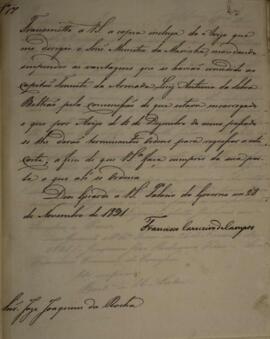 Transmitto a VS a copia inclusa do Aviso que
me dirigio o Snr Ministro da Marinha, mandando
suspender as vantagens que se havião concedido ao
Capitão Tenente da Armada Luiz Antonio da Silva
Beltrão pela commissão de que estava encarregado
e que por Aviso de 16 de Dezembro do anno passado
se lhe derão terminantes ordens para regressar a esta
Corte, a fim de que VS faça cumprir da sua par-
te o que ali se ordena
Deos Guarde a VS. Palacio do Governo em 28
de Novembro de 1831
Francisco Carneiro de Campos
Snr. Joze Joaquim da Rocha